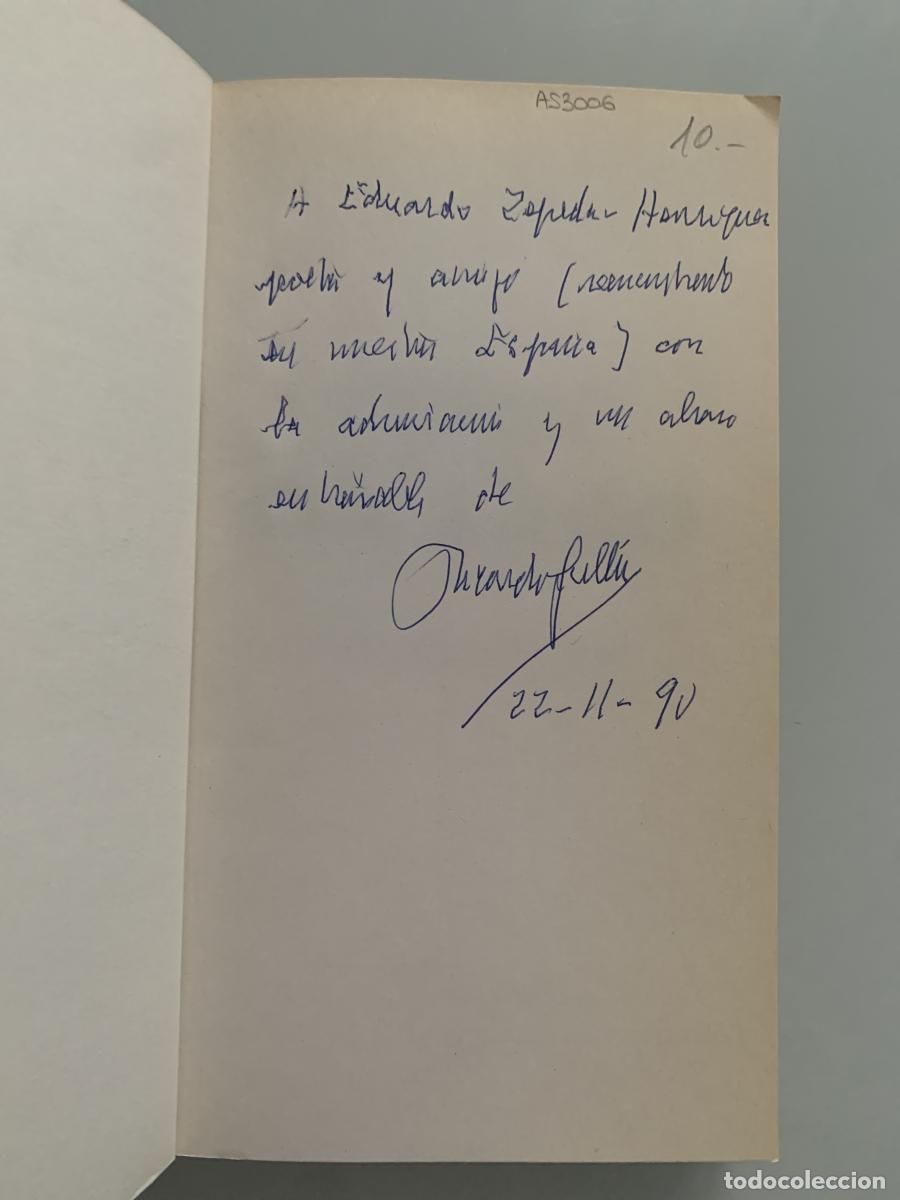 AS3006
10.-
A Eduardo Zepeda-Henríquez
poeta y amigo (reencuentro
en nuestra España) con
la admiración y un abrazo
entrañable de
22-11-90
todocoleccion